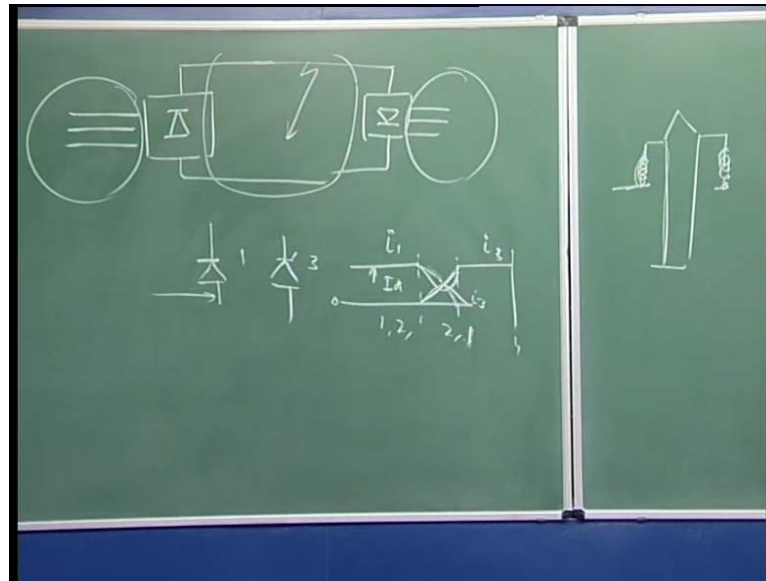 1
3
i1
i3
Id
i3
1,2,
2,